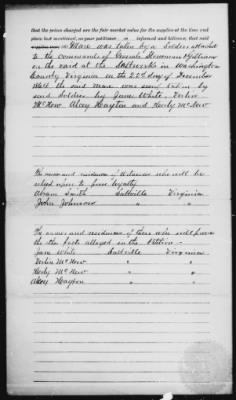 that the prices charged are the fair market value for the supplies at the time and
place last mentioned, as your petitioner is informed and believes, that said
Mare was taken by a Soldier attached
to the command of Generals Stoneman & Gillem
on the raid at the Saltworks in Washington
County Virginia on the 22nd day of December
1864 the said mare was seen taken by
said Soldier by Jane White
McNew Alcey Hayton and McNew
The names and residences of Witnesses who will be
relied upon to prove loyalty
Abram Smith Saltville Virginia
John Johnson " "
The names and residences of those who will prove
the other facts alleged in the Petition -
Jane White Saltville Virginia
McNew " "
McNew " "
Alcey Hayton " "